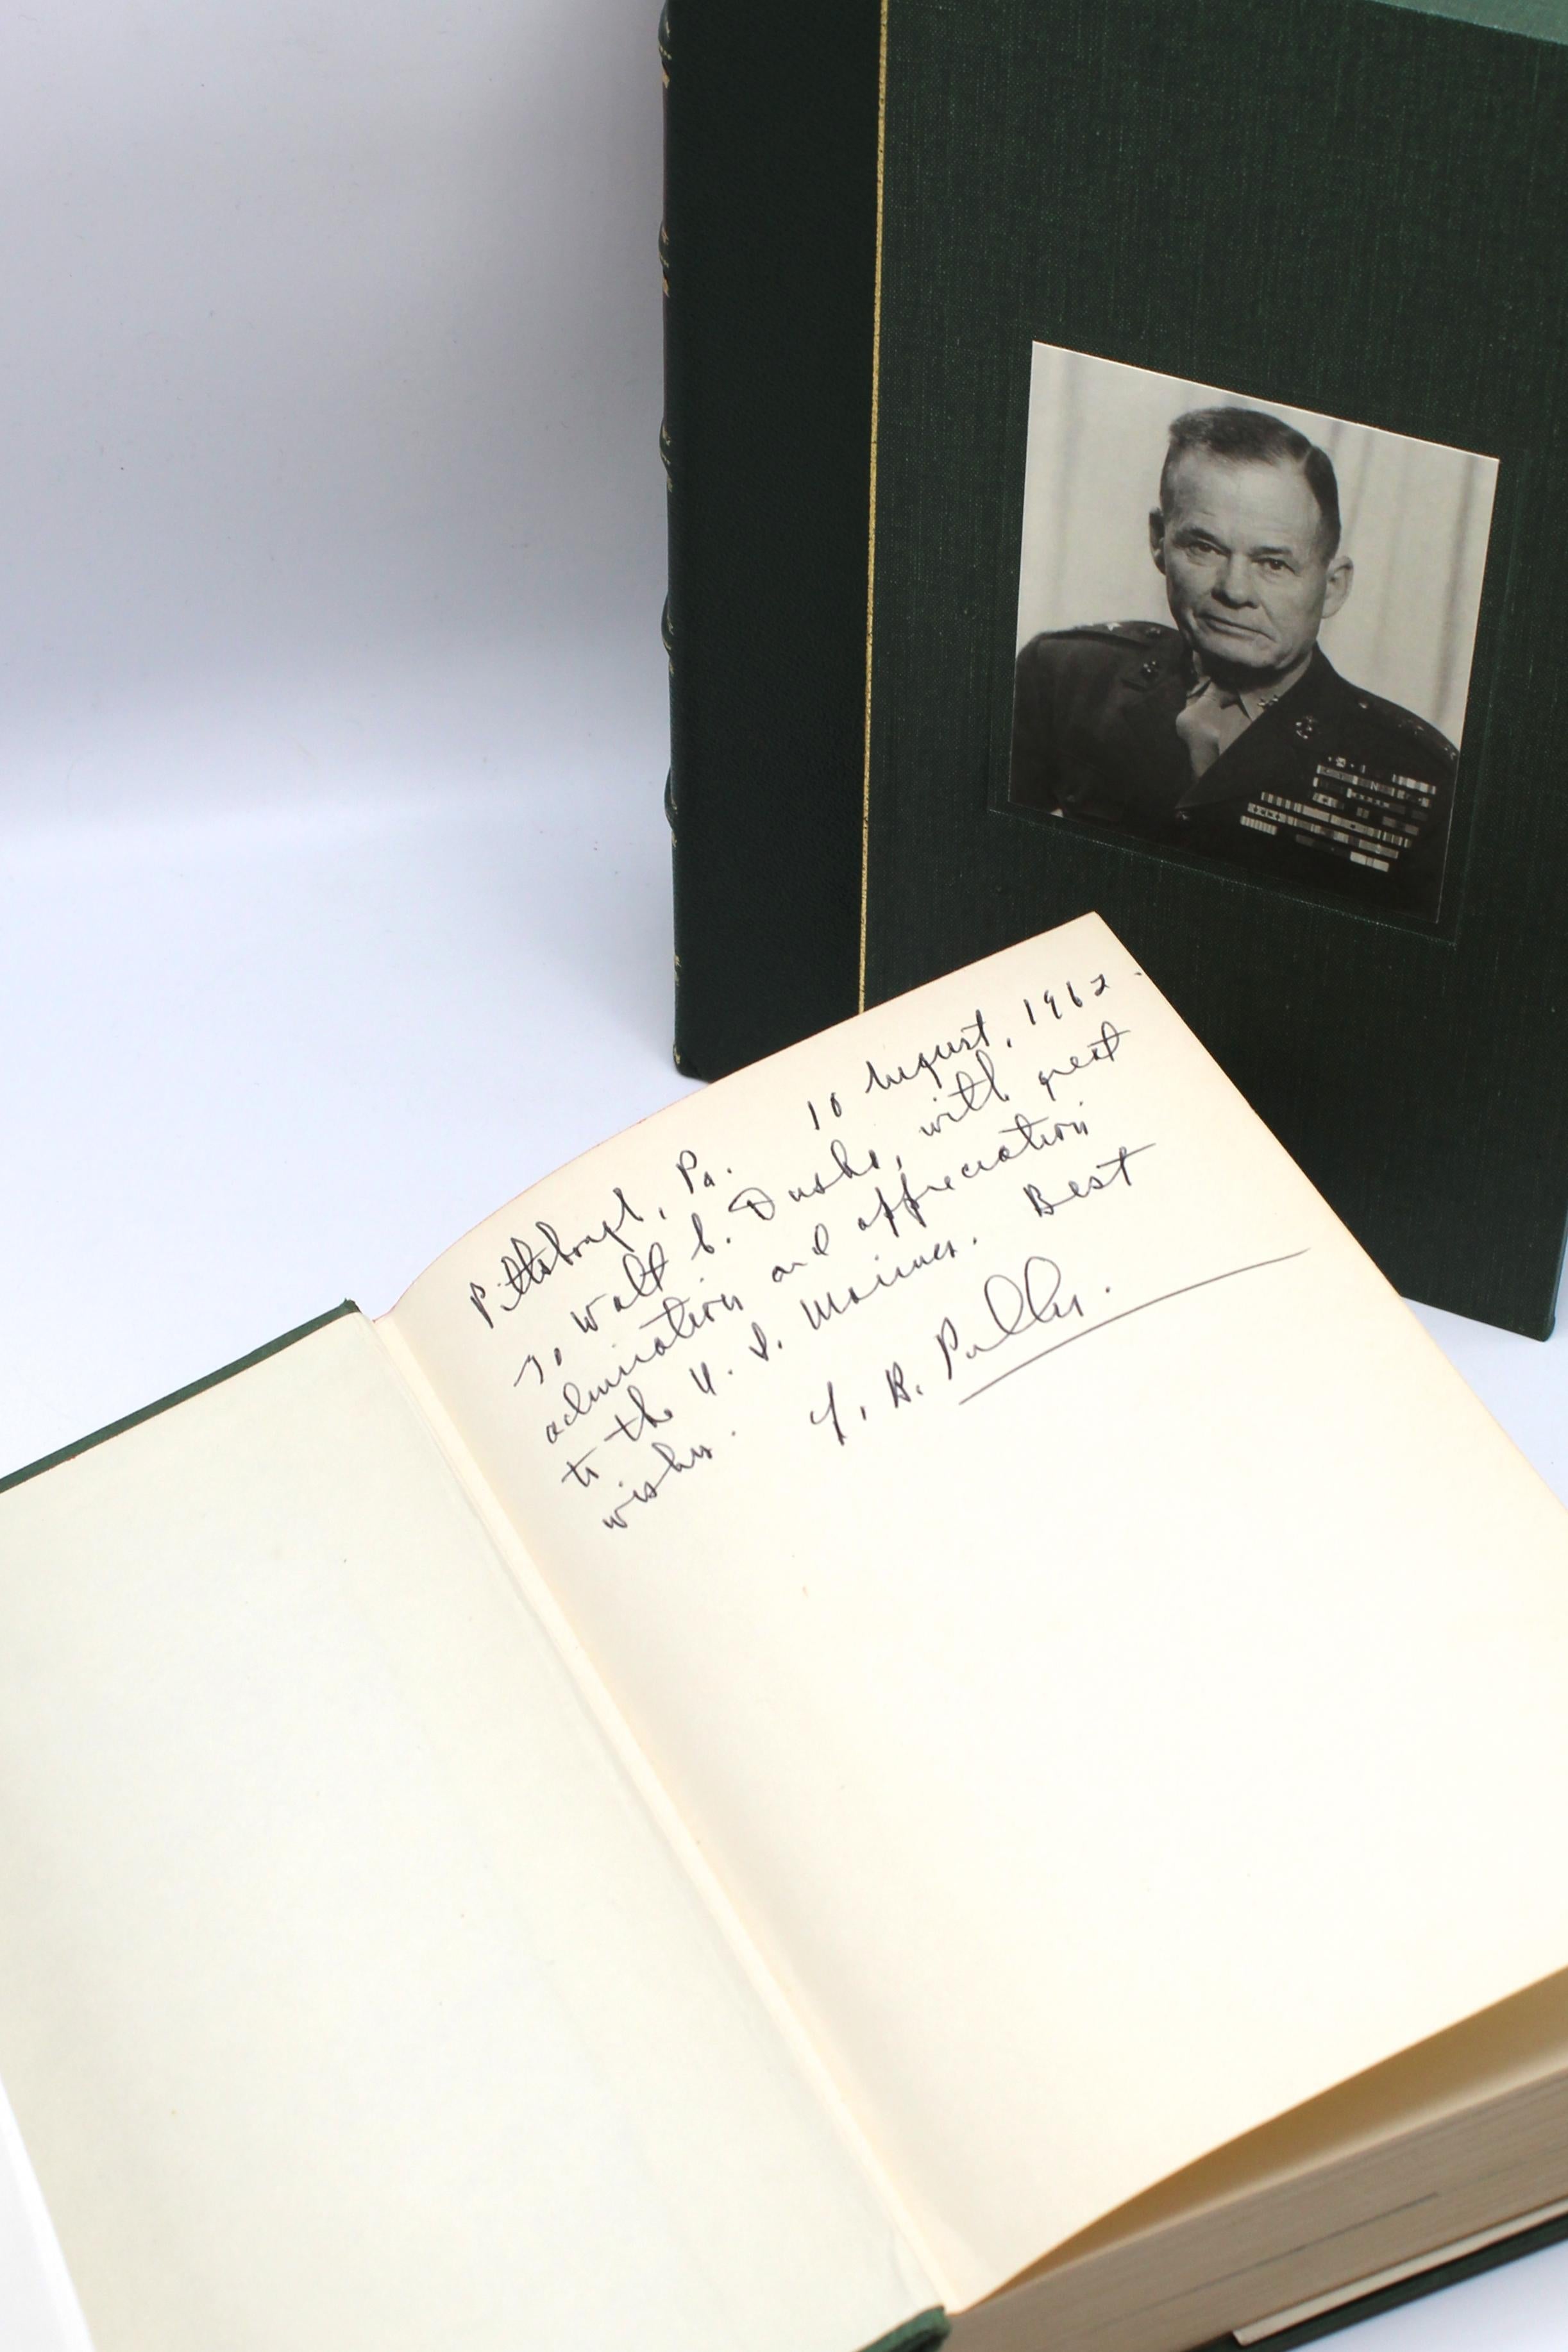 Pittsburgh, Pa. 10 August, 1962.
To Walt C. , with great
admiration and appreciation
to the U. S. Marines. Best
wishes. L. B. Puller.